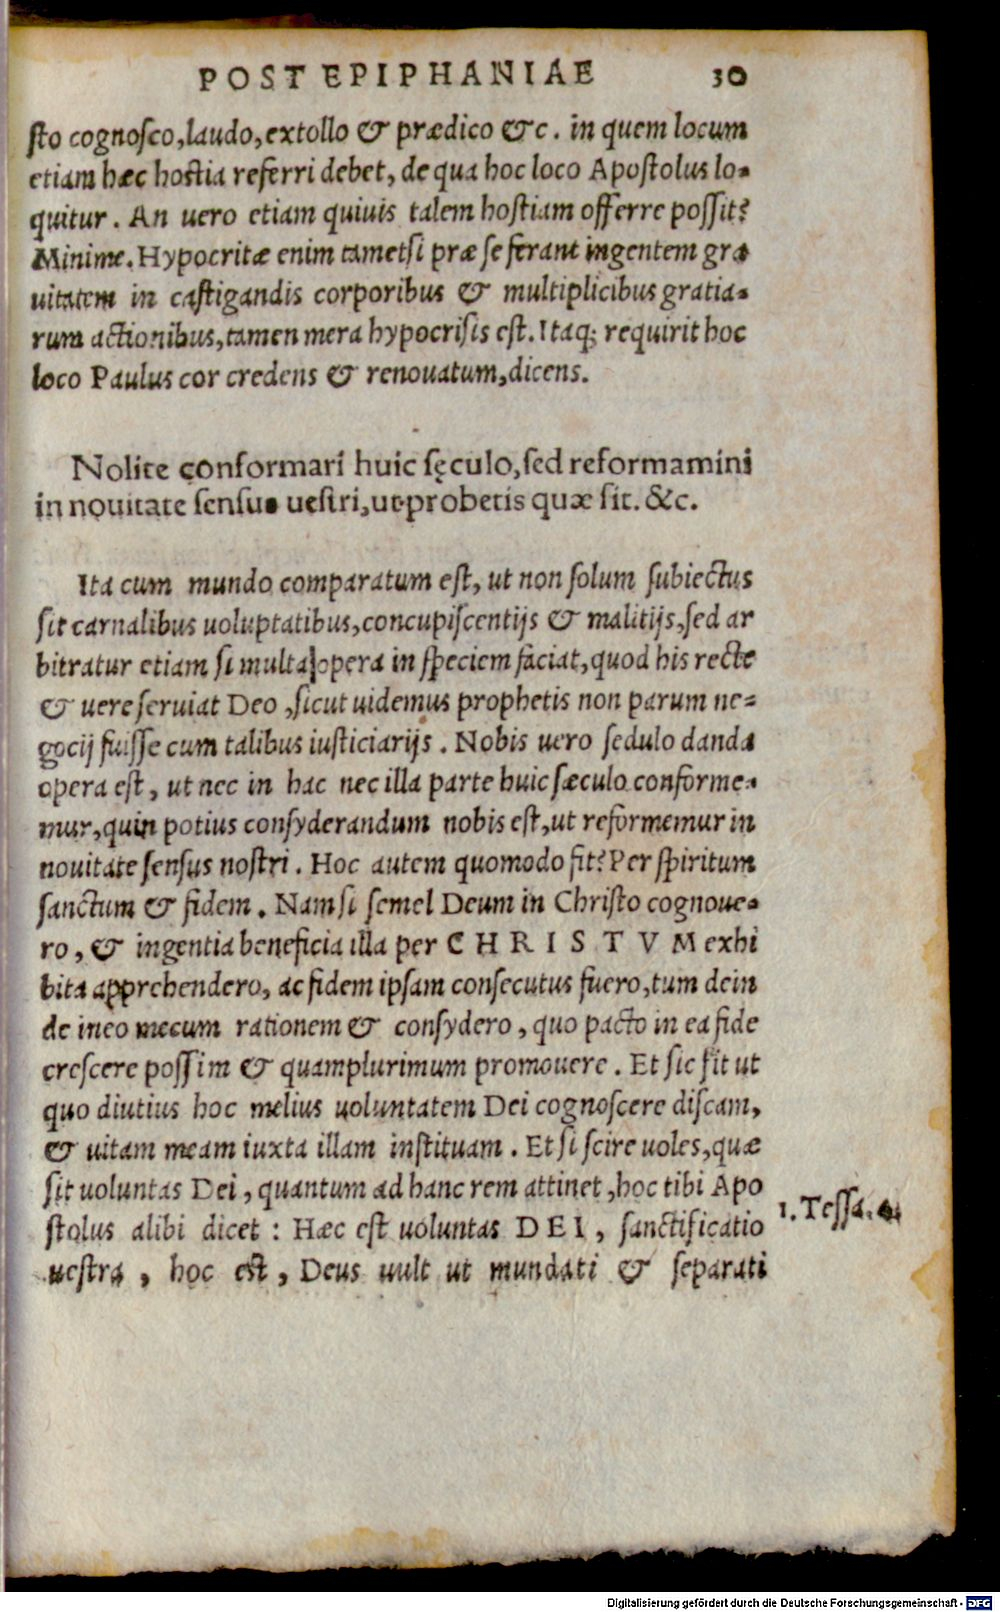 POST EPIPHANIAE 30
sto cognosco, laudo, extollo & prædico &c. in quem locum
etiam hæc hostia referri debet, de qua hoc loco Apostolus lo-
quitur. An uero etiam quiuis talem hostiam offerre possit?
Minime. Hypocritæ enim tametsi præ se ferant ingentem gra
uitatem in castigandis corporibus & multiplicibus gratia-
rum actionibus, tamen mera hypocrisis est. Itaq; requirit hoc
loco Paulus cor credens & renouatum, dicens.
Nolite conformari huic sęculo, sed reformamini
in nouitate sensus uestri, ut probetis quæ sit. &c.
Ita cum mundo comparatum est, ut non solum subiectus
sit carnalibus uoluptatibus, concupiscentijs & malitijs, sed ar
bitratur etiam si multa opera in speciem faciat, quod his recte
& uere seruiat Deo, sicut uidemus prophetis non parum ne-
gocij fuisse cum talibus iusticiarijs. Nobis uero sedulo danda
opera est, ut nec in hac nec illa parte huic sæculo conforme-
mur, quin potius consyderandum nobis est, ut reformemur in
nouitate sensus nostri. Hoc autem quomodo fit? Per spiritum
sanctum & fidem. Nam si semel Deum in Christo cognoue-
ro, & ingentia beneficia illa per CHRISTVM exhi
bita apprehendero, ac fidem ipsam consecutus fuero, tum dein
de ineo mecum rationem & consydero, quo pacto in ea fide
crescere possim & quamplurimum promouere. Et sic fit ut
quo diutius hoc melius uoluntatem Dei cognoscere discam,
& uitam meam iuxta illam instituam. Et si scire uoles, quæ
sit uoluntas Dei, quantum ad hanc rem attinet, hoc tibi Apo
stolus alibi dicet: Hæc est uoluntas DEI, sanctificatio
uestra, hoc est, Deus uult ut mundati & separati
1. Tessa.
Digitalisierung gefördert durch die Deutsche Forschungsgemeinschaft - DFG